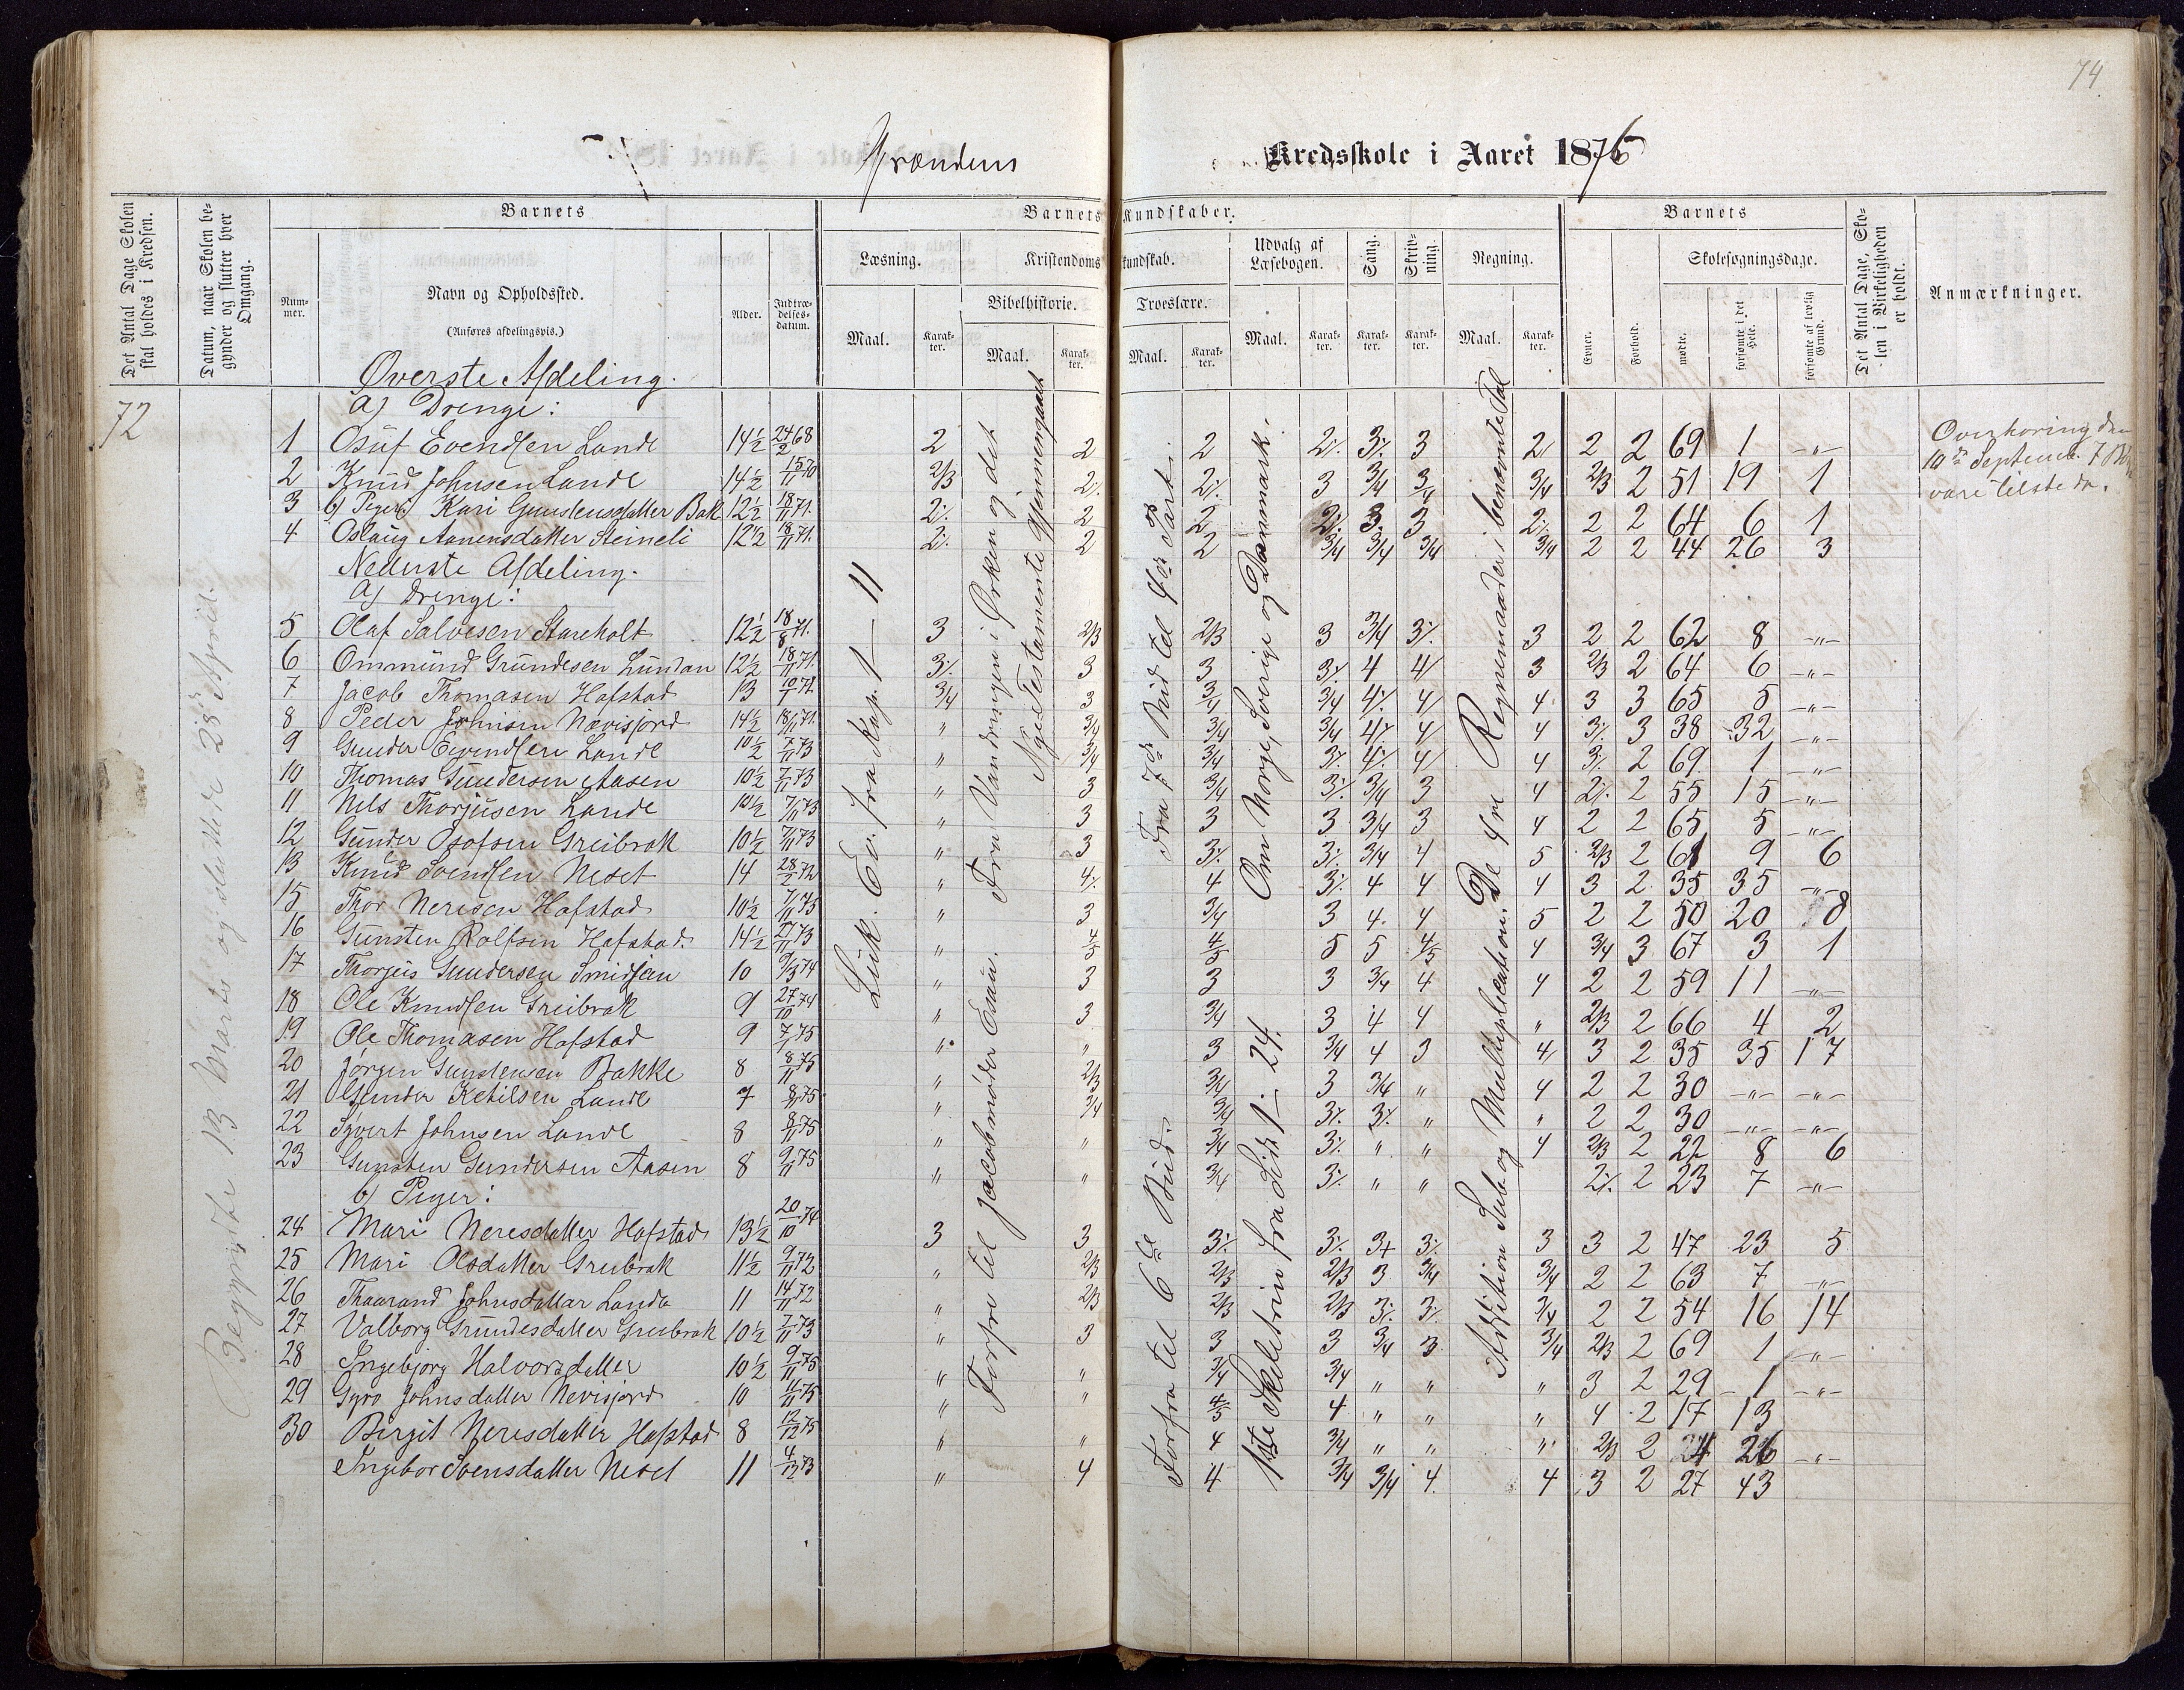 74
Grændens Kredsskole i Aaret 1876
Det Antal Dage Skolen skal holdes i Kredsen.
Datum, naar Skolen begynder og slutter hver Omgang.
Barnets
Barnets Kundskaber.
Barnets
Det Antal Dage, Skolen i Virkeligheden er holdt.
Anmærkninger.
Nummer.
Navn og Opholdssted.
(Anføres afdelingsvis.)
Alder.
Indtrædelsesdatum.
Læsning.
Kristendomskundskab.
Udvalg af Læsebogen.
Sang.
Skrivning.
Regning.
Evner.
Forhold.
Skolesøgningsdage.
Bibelhistorie.
Troeslære.
Maal.
Karakter.
Maal.
Karakter.
Maal.
Karakter.
Maal.
Karakter.
Karakter.
Karakter.
Maal.
Karakter.
mødte.
forsømte i det Hele.
forsømte af lovlig Grund.
72
Begyndte 13 Marts og sluttede 28de April.
Øverste Afdeling.
a) Drenge:
1 Osuf Evendsen Lande 14½ 24/2 68 2 2 2 2% 3% 3 2 2 2 69 1 -"-
2 Knud Johnsen Lande 14½ 15/11 70 2/3 2% 2% 3 3/4 3/4 3/4 2/3 2 51 19 1
3 b) Piger) Kari Gunstensdatter Bak 12½ 18/11 71. 2% 2 2 2% 3 3 2% 2 2 64 6 1
4 Oslaug Aanensdatter Steineli 12½ 18/11 71. 2% 2 2 3/4 3/4 3/4 3/4 2 2 44 26 3
Nederste Afdeling.
a) Drenge:
5 Olaf Salvesen Stareholt 12½ 18/8 71. 3 2/3 2/3 3 3/4 3% 3 2 2 62 8 -"-
6 Ommund Grundesen Lundan 12½ 18/11 71. 3% 3 3 3% 4 4 3 2/3 2 64 6 -"-
7 Jacob Thomasen Hofstad 13 10/1 71. 3/4 3 3/4 3/4 4% 4 4 3 3 65 5 -"-
8 Peder Johnsen Nævisjord 14½ 18/11 71. " 3/4 3/4 3/4 4% 4 4 3% 3 38 32 -"-
9 Gunder Eyvendsen Lande 10½ 7/11 73 " 3/4 3/4 3% 4% 4 4 3% 2 69 1 -"-
10 Thomas Gundersen Aasen 10½ 7/11 73 " 3 3/4 3% 3/4 3 4 2% 2 55 15 -"-
11 Nils Thorjusen Lande 10½ 7/11 73 " 3 3 3 3/4 3 4 2 2 65 5 -"-
12 Gunder Osofsen Greibrok 10½ 7/11 73 " 3 3% 3% 3/4 4 5 2/3 2 61 9 6
13 Knud Svendsen Neset 14 28/2 72 " 4% 4 3% 4 4 4 3 2 35 35 -"-
15 Thor Neresen Hofstad 10½ 7/11 73 " 3 3/4 3 4 4 5 2 2 50 20 8
16 Gunsten Rolfsen Hofstad 14½ 27/11 73 " 4/5 4/5 5 5 4/5 4 3/4 3 67 3 1
17 Thorjus Gundersen Smidjan 10 9/3 74 " 3 3 3 3/4 4 4 2 2 59 11 -"-
18 Ole Knudsen Greibrok 9 27/10 74 " 3 3/4 3 4 4 " 2/3 2 66 4 2
19 Ole Thomasen Hofstad 9 7/1 75 " " 3 3/4 4 3 4 3 2 35 35 17
20 Jørgen Gunstensen Bakke 8 8/11 75 " 2/3 3/4 3 3/4 " 4 2 2 30 -"- -"-
21 Gunder Ketilsen Lande 7 8/11 75 " 3/4 3/4 3% 3% " " 2 2 30 -"- -"-
22 Syvert Johnsen Lande 8 8/11 75 " " 3/4 3% " " 4 2/3 2 22 8 6
23 Gunsten Gundersen Aasen 8 9/11 75 " " 3/4 3% " " 2% 2 23 7 -"-
b) Piger:
24 Mari Neresdatter Hofstad 13½ 20/10 74 3 3 3% 3% 3+ 3% 3 3 2 47 23 5
25 Mari Olsdatter Greibrok 11½ 9/11 72 " 2/3 2/3 2/3 3 3/4 3/4 2 2 63 7 -"-
26 Thaarand Johnsdatter Lande 11 14/11 72 " 2/3 2/3 2/3 3% 3% 3/4 2 2 54 16 14
27 Valborg Grundesdatter Greibrok 10½ 7/11 73 " 3 3 3 3/4 3 3/4 2/3 2 69 1 -"-
28 Ingebjørg Halvorsdatter 10½ 9/11 75 " " 3/4 3/4 " " " 3 2 29 1 -"-
29 Gyro Johnsdatter Nevisjord 10 11/11 75 " " 4/5 4 " " " 4 2 17 13
30 Birgit Neresdatter Hofstad 8 12/12 75 " " 4 3/4 " " " 2/3 2 4 26 -"-
Ingebor Svensdatter Neset 11 4/12 73 " 4 4 3/4 3/4 4 4 3 2 27 43
Luk. Ev. fra Kap. 1 – 11
Fra Vandringen i Ørken og det Nye Testamente gjennemgaaet
Forfra til Jacob møder Esau.
Fra 7de Bud til 4de Part.
Forfra til 6te Bud
Om Norge, Sverige og Danmark.
1ste Skoletrin fra Side 1 – 24.
De 4re Regnemaader i benævnte Tal
Addition Sub og Multiplication.
Overhøring den
10de Septemb. 7 Børn
vare tilstede.